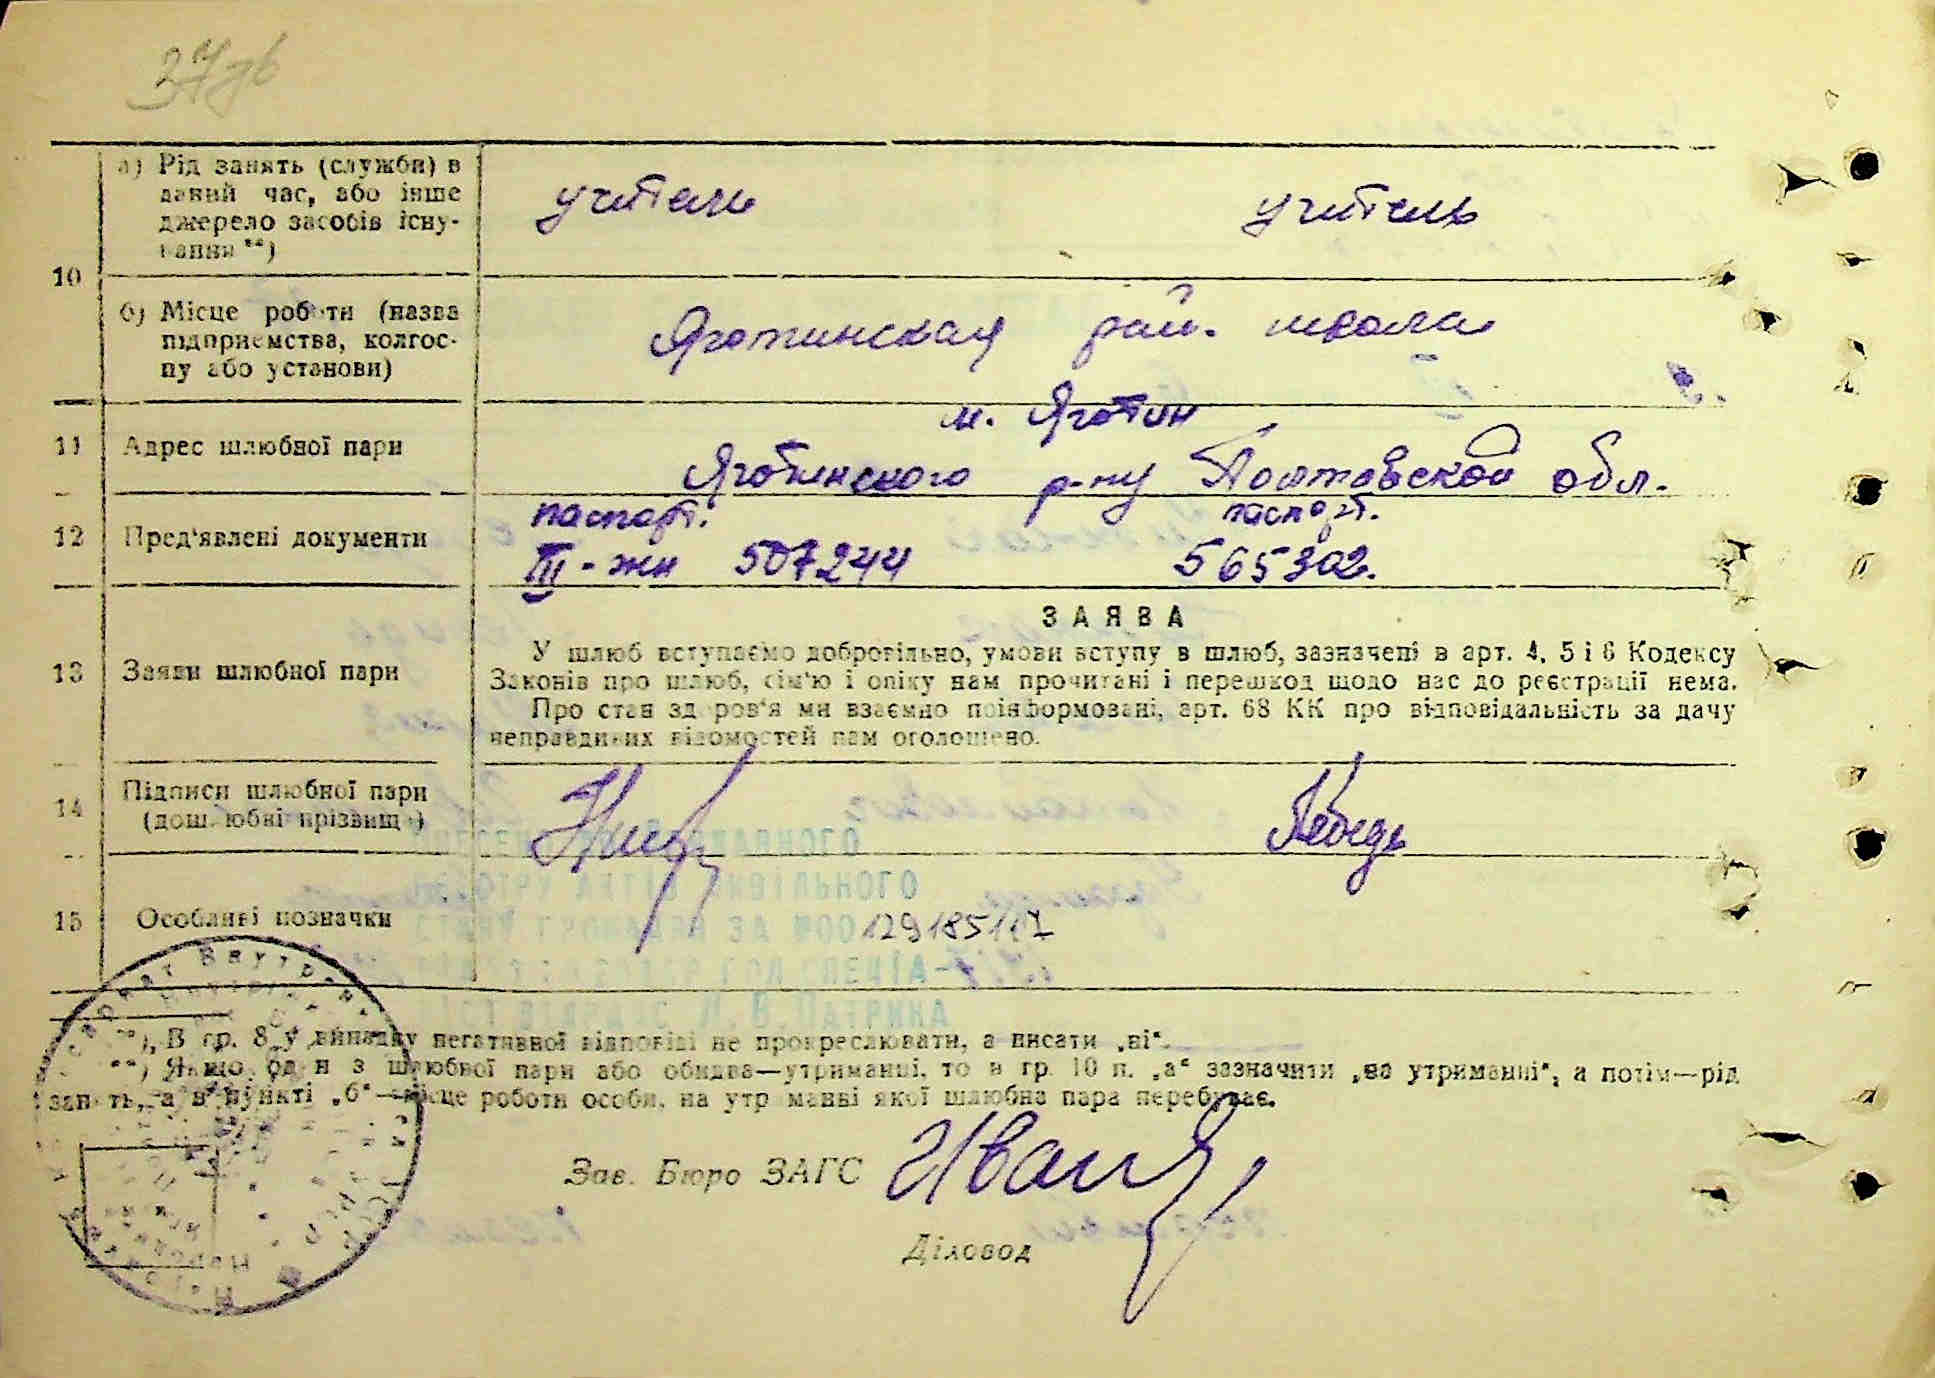 37 зв
10
а) Рід занять (служби) в
даний час, або інше
джерело засобів існу-
вання **)
учитель учитель
б) Місце роботи (назва
підприємства, колгос-
пу або установи)
Яготинская рай. школа
11 Адрес шлюбної пари
м. Яготин
Яготинского р-ну Полтавской обл.
12 Пред'явлені документи
паспорт: паспорт.
III - жн 507244 565302.
13 Заяви шлюбної пари
ЗАЯВА
У шлюб вступаємо добровільно, умови вступу в шлюб, зазначені в арт. 4, 5 і 6 Кодексу
Законів про шлюб, сім'ю і опіку нам прочитані і перешкод щодо нас до реєстрації нема.
Про стан здоров'я ми взаємно поінформовані, арт. 68 КК про відповідальність за дачу
неправдивих відомостей нам оголошено.
14 Підписи шлюбної пари
(дошлюбні прізвища)
Лебедь
15 Особливі позначки
ВНЕСЕНО ДО ДЕРЖАВНОГО
РЕЄСТРУ АКТІВ ЦИВІЛЬНОГО
СТАНУ ГРОМАДЯН ЗА №00129185117
СПЕЦІА-
ЛІСТ ВІДРАЦС Л.В.ПАТРИКА
*) В гр. 8 у випадку негативної відповіді не прокреслювати, а писати „ні“.
**) Якщо один з шлюбної пари або обидва—утриманці, то в гр. 10 п. „а“ зазначити „на утриманні“, а потім—рід
занять, а в пункті „б“—місце роботи особи, на утриманні якої шлюбна пара перебуває.
Зав. Бюро ЗАГС
Діловод